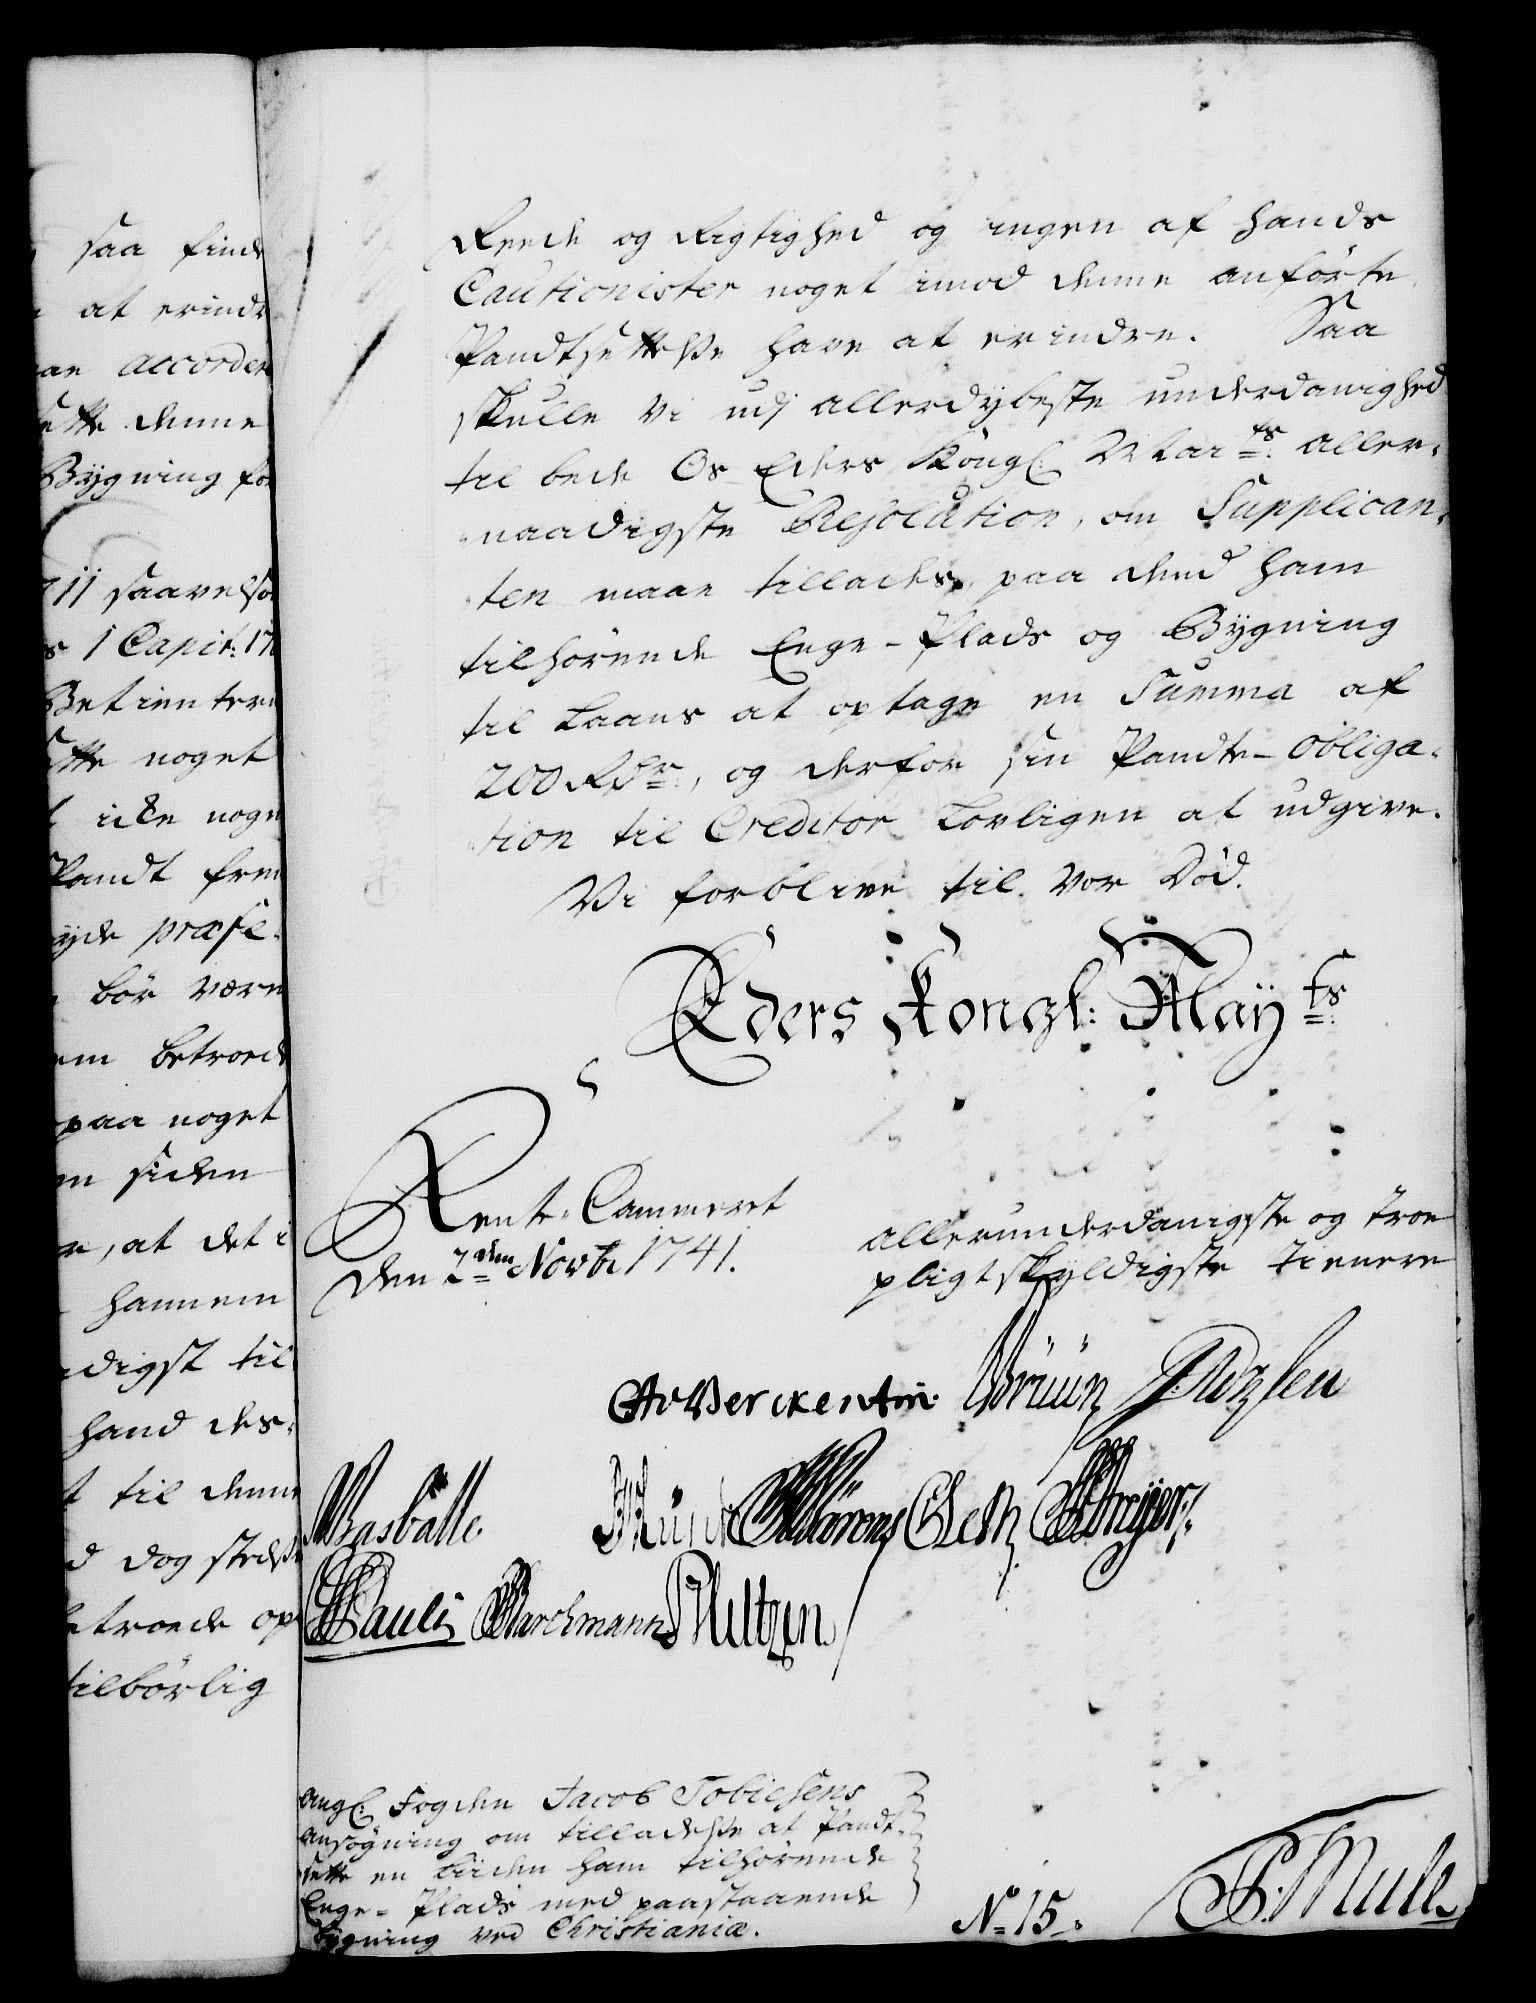 saa finde
at erindr
accorder
sette denne
Bygning for
711 saavelso
s 1 Capit: 17
Betienter
sette noget
icke noge
Pandt frem
præfe-
bör være
em betroede
paa noget
en siden
, at det i
hannem
digst til
hand des-
til denne
dog stedse
betroede op
tilbörlig
Reede og Rigtighed og ingen af hands
Cautionister noget imod denne anförte
Pandtsettelse have at erindre. Saa
skulle vi udj allerdybeste underdanighed
til bede Os Eders Kongl: Mai:ts aller-
naadigste Resolution, om Supplican-
ten maae tillades, paa dend ham
tilhörende Enge-Plads og Bygning
til Laans at optage en Summa af
200 Rdr:, og derfor sin Pandte-Obliga-
tion til Creditor Lovligen at udgive.
Vi forblive til vor Död.
Eders Kongl: Mayts:
Rente-Cammeret
Den 2den Novbr 1741.
allerunderdanigste og troe
pligtskyldigste tienere
Berckentin. Brüün
Basballe.
Pauli Barchmann Meltzen
angl: Fogden Jacob Tobiesens
ansögning om tilladelse at Pandt-
sette en Liiden ham tilhörende
Enge-Plads med paastaaende
Bygning ved Christiania.
No 15.
P. Mule